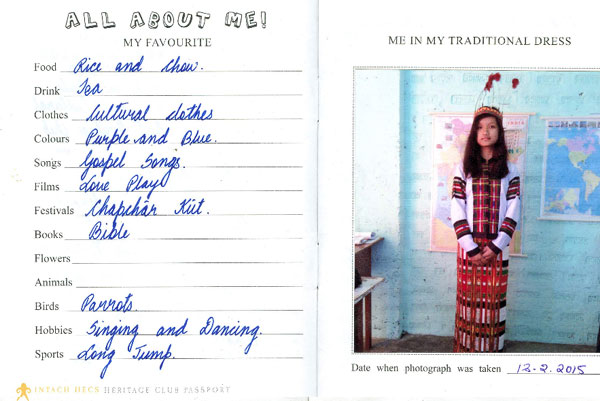 ALL ABOUT ME!
MY FAVOURITE
Food Rice and Chow.
Drink Tea
Clothes Cultural clothes
Colours Purple and Blue.
Songs Gospel Songs.
Films Love Play
Festivals Chapchar Kut.
Books Bible
Flowers
Animals
Birds Parrots.
Hobbies Singing and Dancing.
Sports Long Jump.
INTACH HECS HERITAGE CLUB PASSPORT
ME IN MY TRADITIONAL DRESS
Date when photograph was taken 12-2-2015